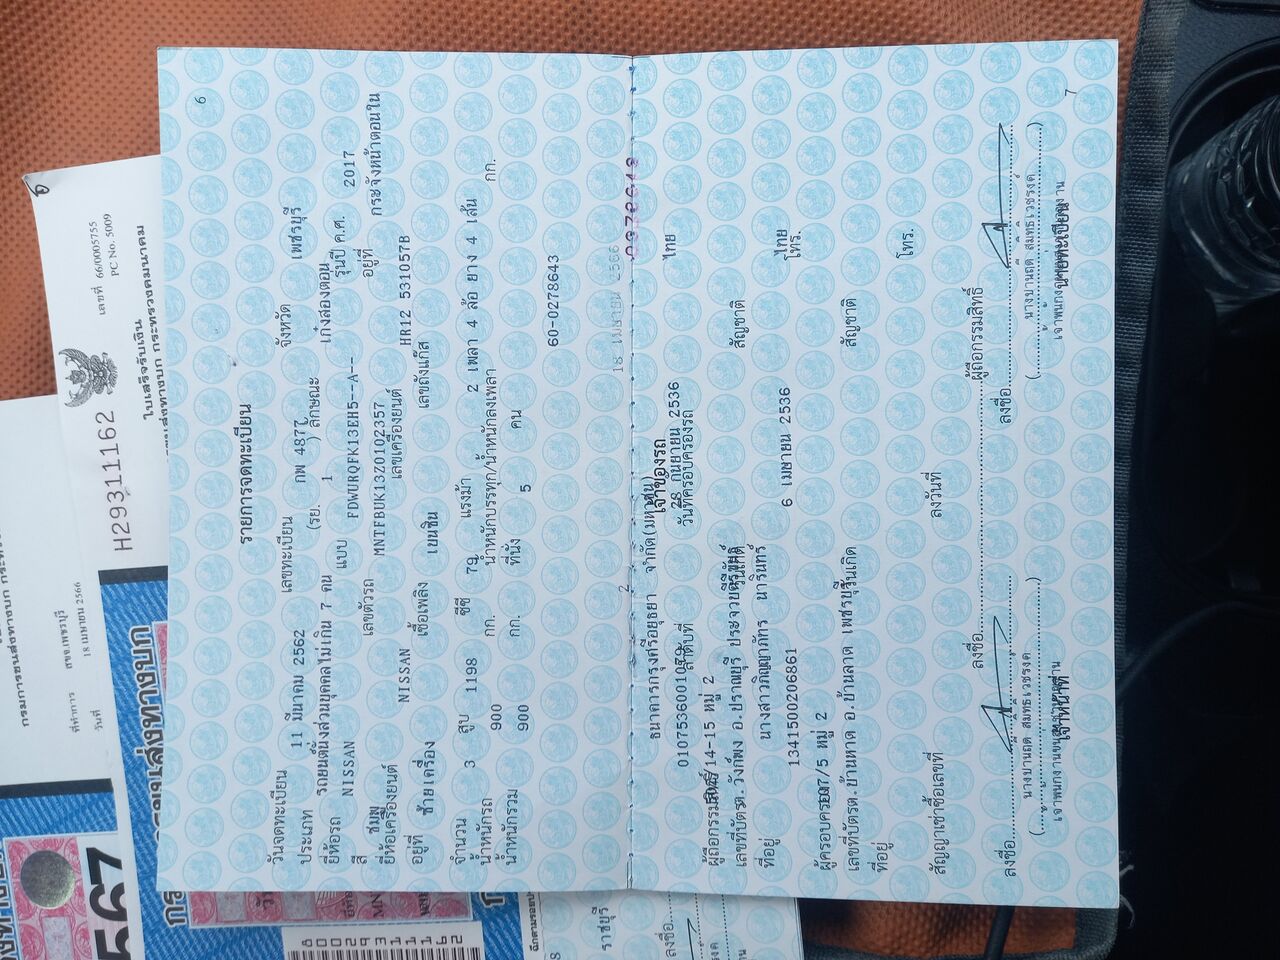 6
รายการจดทะเบียน
วันจดทะเบียน 11 มีนาคม 2562 เลขทะเบียน กพ 4877 จังหวัด เพชรบุรี
ประเภท รถยนต์นั่งส่วนบุคคลไม่เกิน 7 คน (รย. 1 ) ลักษณะ เก๋งสองตอน
ยี่ห้อรถ NISSAN แบบ FDWURQFK13EH5--A-- รุ่นปี ค.ศ. 2017
สี ชมพู เลขตัวรถ MNTFBUK13Z0102357 อยู่ที่ กระจังหน้าตอนใน
ยี่ห้อเครื่องยนต์ NISSAN เลขเครื่องยนต์ HR12 531057B
อยู่ที่ ซ้ายเครื่อง เชื้อเพลิง เบนซิน เลขถังแก๊ส
จำนวน 3 สูบ 1198 ซีซี 79 แรงม้า 2 เพลา 4 ล้อ ยาง 4 เส้น
น้ำหนักรถ 900 กก. น้ำหนักบรรทุก/น้ำหนักลงเพลา กก.
น้ำหนักรวม 900 กก. ที่นั่ง 5 คน
60-0278643
18 เมษายน 2566
2
เจ้าของรถ
ธนาคารกรุงศรีอยุธยา จำกัด(มหาชน)
ลำดับที่ วันที่ครอบครองรถ 28 กันยายน 2536 ไทย
ผู้ถือกรรมสิทธิ์
เลขที่บัตร วันเกิด สัญชาติ
ต.วังก์พง อ.ปราณบุรี
ที่อยู่ นางสาวภิญญาภัทร นารินทร์
1341500206861 6 เมษายน 2536 ไทย
โทร.
ผู้ครอบครอง 7/5 หมู่ 2
เลขที่บัตร ต.บ้านหาด อ.บ้านลาด เพชรบุรี วันเกิด สัญชาติ
ที่อยู่ โทร.
สัญญาเช่าซื้อเลขที่ ลงวันที่
ลงชื่อ ผู้ถือกรรมสิทธิ์
ลงชื่อ ลงชื่อ
นายทะเบียน
เจ้าหน้าที่
7
เลขที่ 66/0005755
PC No. 5009
ใบเสร็จรับเงิน
กรมการขนส่งทางบก กระทรวงคมนาคม
H29311162
ที่ทำการ สขจ.เพชรบุรี
วันที่ 18 เมษายน 2566
567
ราชบุรี
ลงชื่อ